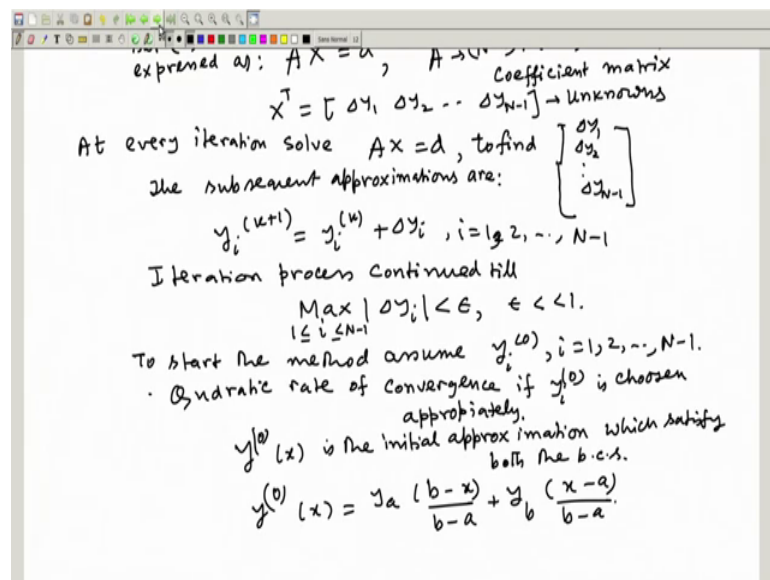 expressed as: AX = d, A →
Coefficient matrix
X^T = [ Δy_1 Δy_2 .. Δy_{N-1} ] → Unknowns
At every iteration solve AX = d, to find [ Δy_1 Δy_2 : Δy_{N-1} ]
The subsequent approximations are:
y_i^{(k+1)} = y_i^{(k)} + Δy_i, i = 1, 2, .., N-1
Iteration process continued till
Max |Δy_i| < ε, ε < < 1.
1 ≤ i ≤ N-1
To start the method assume y_i^{(0)}, i = 1, 2, .., N-1.
· Qudratic rate of convergence if y_i^{(0)} is choosen
appropiately.
y^{(0)}(x) is the initial approximation which satisfy
both the b.c.s.
y^{(0)}(x) = y_a (b-x)/(b-a) + y_b (x-a)/(b-a).